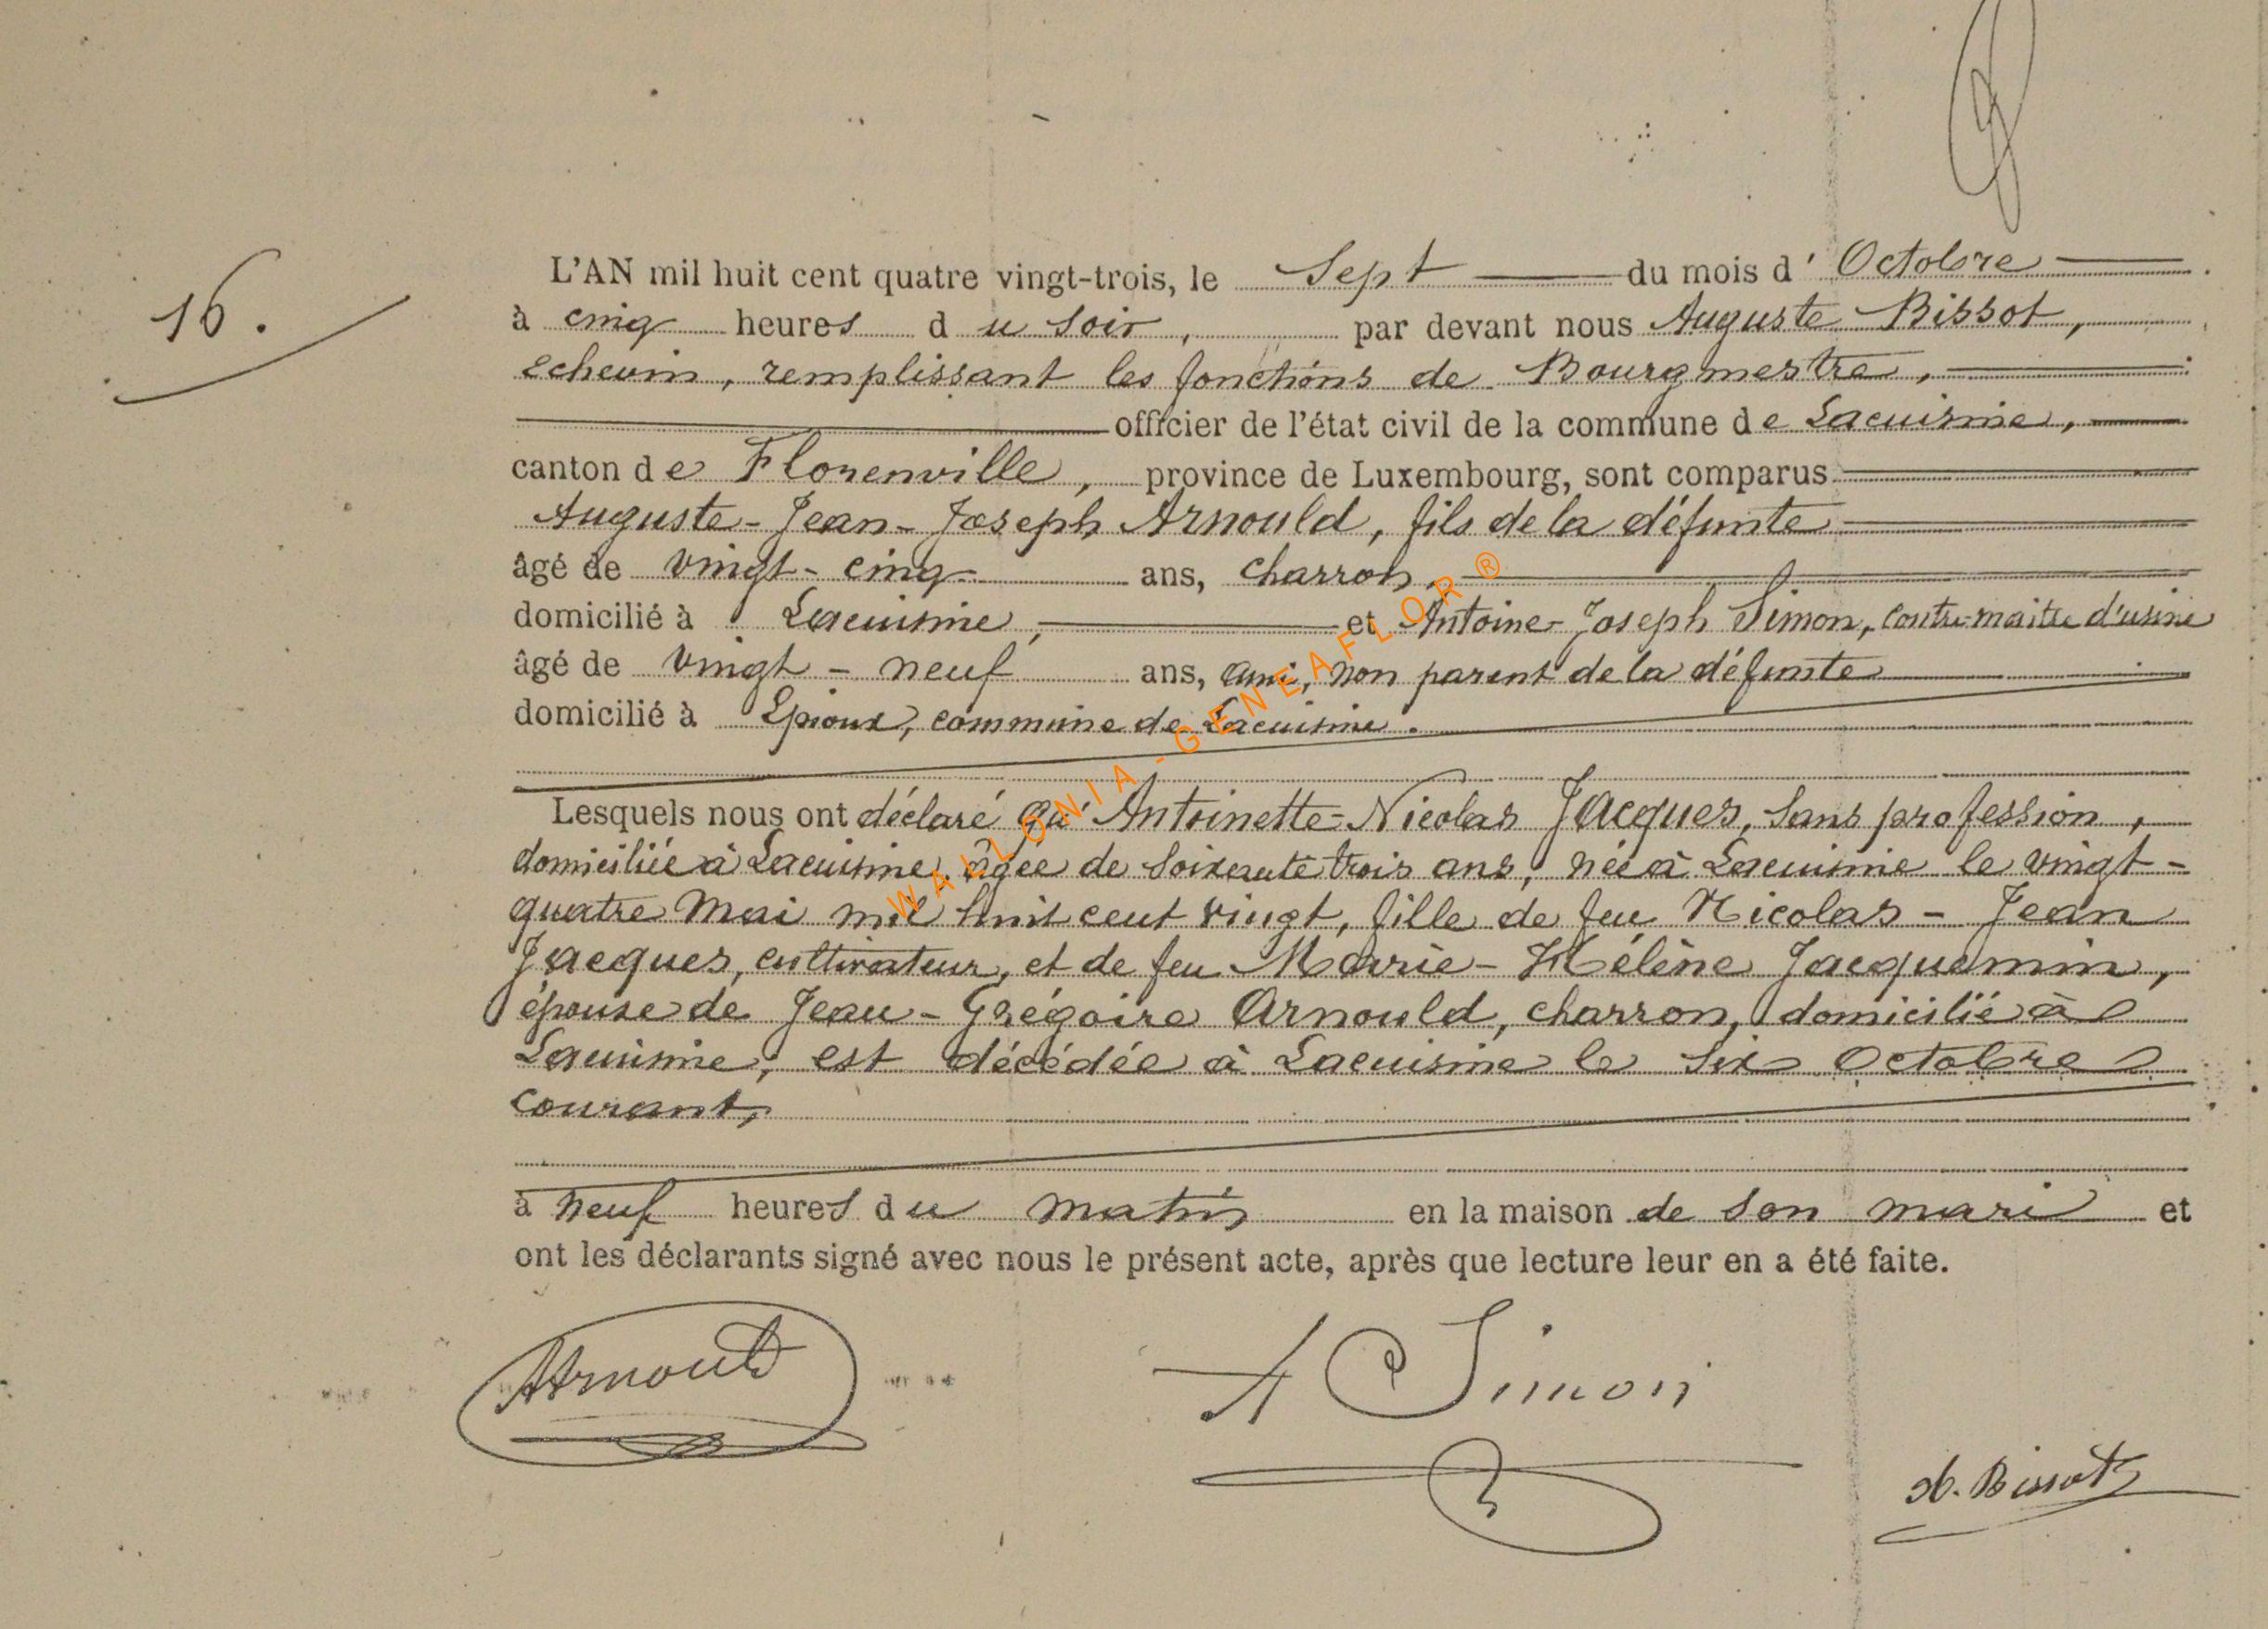 16.
L'AN mil huit cent quatre vingt-trois, le Sept du mois d'Octobre
à cinq heures du soir, par devant nous Auguste Bissot,
Echevin, remplissant les fonctions de Bourgmestre,
officier de l'état civil de la commune de Lacuisine,
canton de Florenville, province de Luxembourg, sont comparus
Auguste-Jean-Joseph Arnould, fils de la défunte
âgé de vingt-cinq ans, charron,
domicilié à Lacuisine, et Antoine-Joseph Simon, contre-maitre d'usine
âgé de vingt-neuf ans, ami, non parent de la défunte
domicilié à Epioux, commune de Lacuisine.
Lesquels nous ont déclaré qu'Antoinette-Nicolas Jacques, sans profession,
domiciliée à Lacuisine, âgée de soixante trois ans, née à Lacuisine le vingt-
quatre Mai mil huit cent vingt, fille de feu Nicolas-Jean
Jacques, cultivateur, et de feu Marie-Hélène Jacquemin,
épouse de Jean-Grégoire Arnould, charron, domicilié à
Lacuisine, est décédée à Lacuisine le six Octobre
courant,
à neuf heures du matin en la maison de son mari et
ont les déclarants signé avec nous le présent acte, après que lecture leur en a été faite.
Arnould A Simon
A. Bissot
WALLONIA-GENEAFLOR®